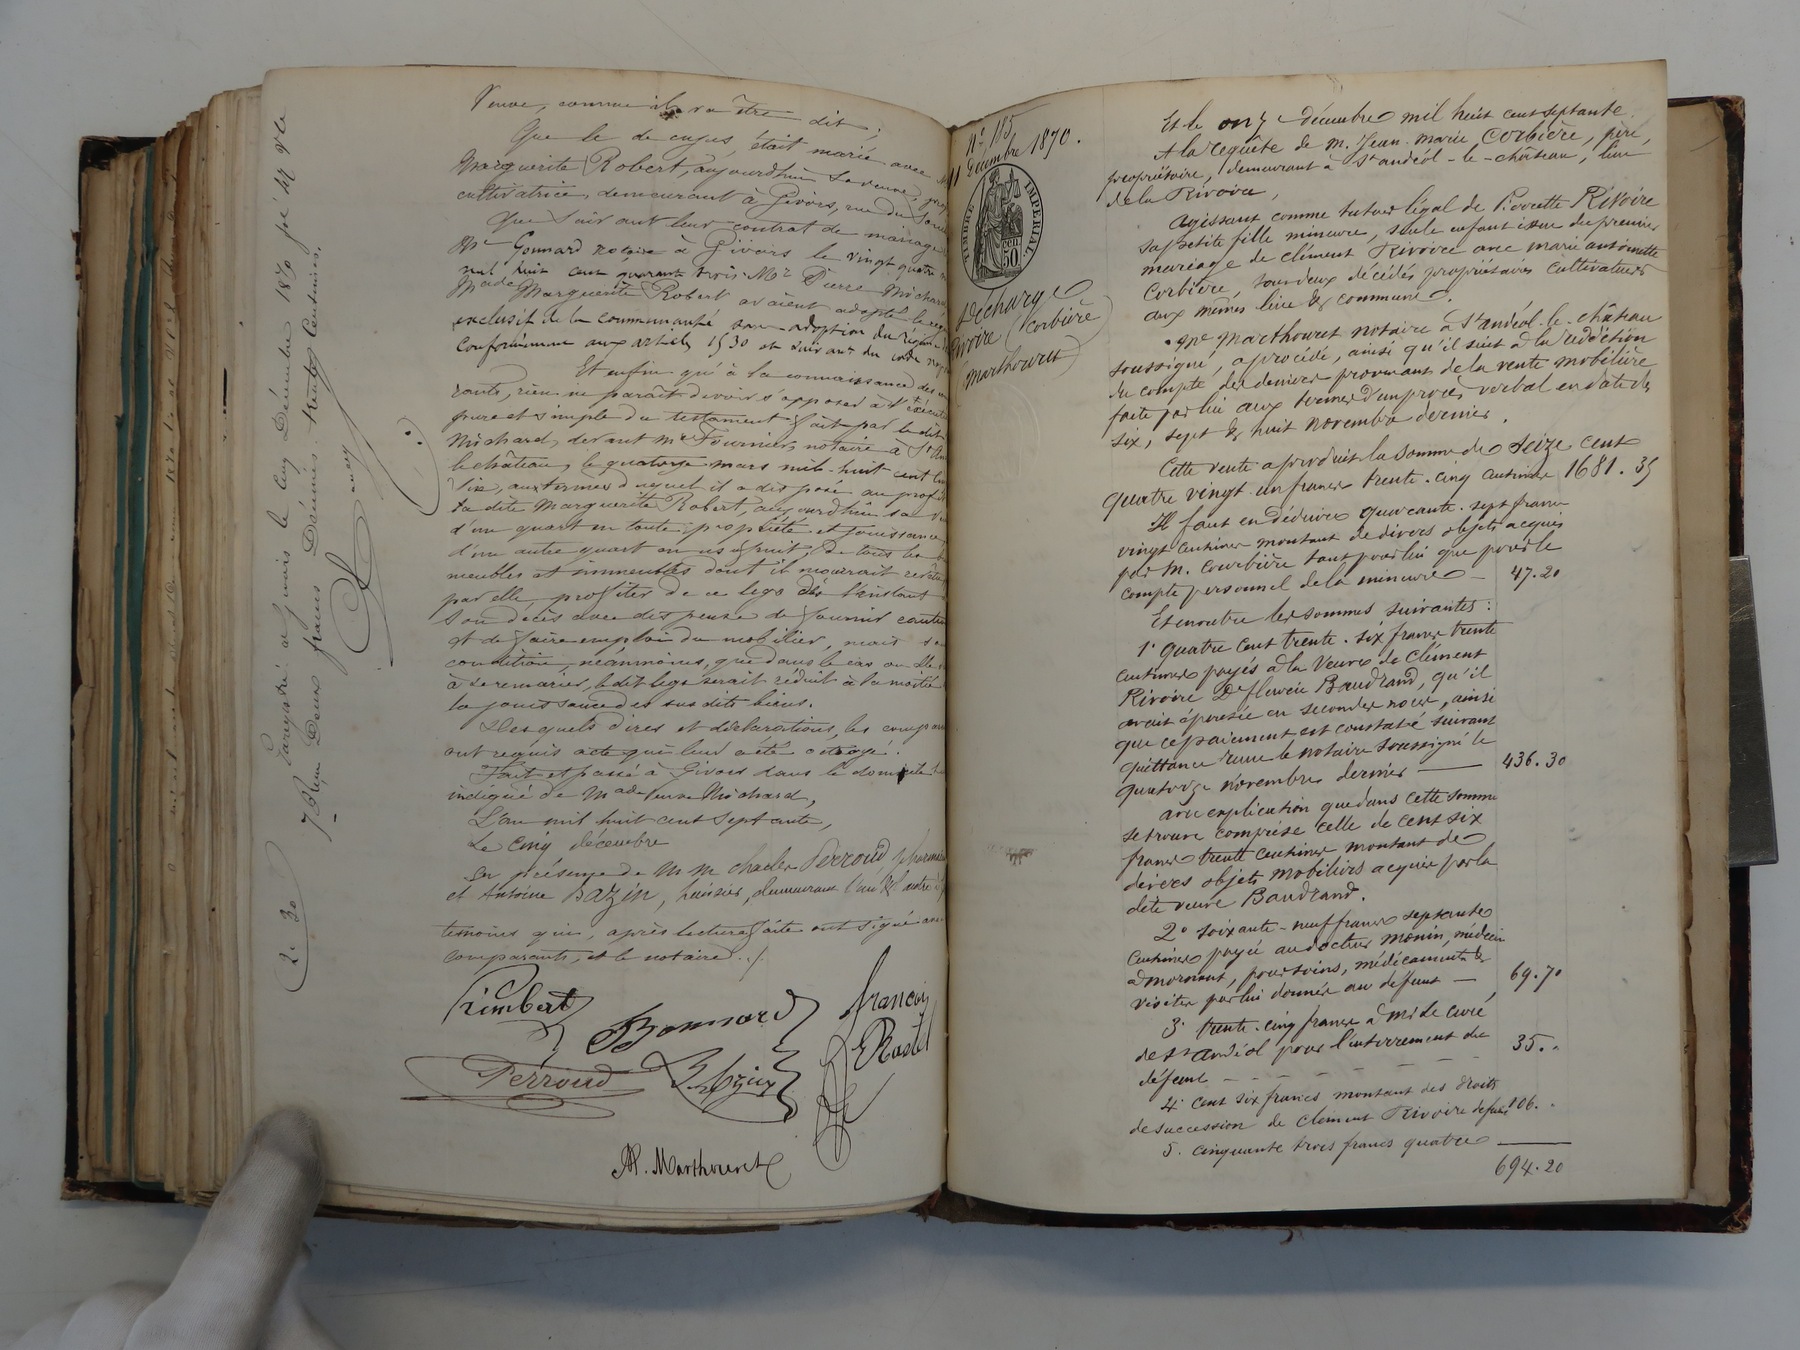 Veuve, comme il va être dit ;
Que le de cujus, était marié avec
Marguerite Robert, aujourdhui sa veuve,
cultivatrice, demeurant à Givors, rue du
Que suivant leur contrat de mariage
Me Gonnard notaire à Givors le vingt quatre
mil huit cent quarante trois Mr Pierre Michard
Made Marguerite Robert avaient adopté le
exclusif de la communauté
Conformément aux articles 1530 et suivants du code
Et enfin qu'à la connaissance des
rants, rien ne parait devoir s'opposer à l'exécution
pure et simple du testament fait par le dit
Michard, devant Me Fournier, notaire à St
le château, le quatorze mars mil-huit cent
six, aux termes duquel il a disposé au profit
la dite Marguerite Robert, aujourdhui sa
d'un quart en toute propriété et jouissance,
d'un autre quart en usufruit, de tous les
meubles et immeubles dont il mourrait
par elle profiter de ce legs dès l'instant
son décès avec dispense de fournir caution
et de faire emploi du mobilier, mais
condition, néanmoins, que dans le cas où
à se remarier, le dit legs serait réduit à la moitié
la jouissance des susdits biens.
Desquels dires et déclarations, les
ont requis acte qui leur a été octroyé.
Fait et passé à Givors dans le domicile
indiqué de Made Veuve Michard,
L'an mil huit cent septante,
Le cinq décembre
En présence de M M Charles Perroud,
et Antoine Bazin, huissier, demeurant l'un & l'autre
témoins qui, après lecture faite ont signé
comparants, et le notaire ./.
Rimbert
Bonnard
françois
Perroud
A. Marthouret
Enregistré à Givors le Cinq Décembre 1870
Reçu Deux francs Décimes trente Centimes.
2. 30
No 185
11 Décembre 1870.
TIMBRE IMPERIAL.
50 cen
Décharge
Rivoire (Corbière)
(Marthouret)
Et le onze décembre mil huit cent septante.
A la requête de M. Jean-Marie Corbière, père,
propriétaire, demeurant à St andéol-le-château, lieu
de la Rivoire,
Agissant comme tuteur légal de Pierrette Rivoire
sa petite fille mineure, seule enfant issue du premier
mariage de Clément Rivoire avec Marie antoinette
Corbière, tous deux décédés propriétaires cultivateurs
aux mêmes lieu & commune.
Me Marthouret notaire à St andéol-le-château
soussigné, a procédé, ainsi qu'il suit à la reddition
du compte des deniers provenant de la vente mobilière
faite par lui aux termes d'un procès verbal en date des
six, sept & huit novembre dernier.
Cette vente a produit la somme de Seize cent
quatre vingt un francs trente-cinq centimes 1681.35
Il faut en déduire quarante-sept francs
vingt centimes montant de divers objets acquis
par M. Courbière tant pour lui que pour le
compte personnel de la mineure - 47.20
Et en outre les sommes suivantes :
1° quatre cent trente-six francs trente
centimes payés à la veuve de Clément
Rivoire De fleurie Baudrand, qu'il
avait épousée en secondes noces, ainsi
que ce paiement est constaté suivant
quittance reçue le notaire soussigné le
quatorze novembre dernier — 436.30
avec explication que dans cette somme
se trouve comprise celle de cent six
francs trente centimes montant de
divers objets mobiliers acquis par la
dite veuve Baudrand.
2° soixante-neuf francs septante
centimes payée au docteur Monin, médecin
à Mornant, pour soins, médicaments &
visites par lui donnés au défunt — 69.70
3° trente-cinq francs à Mr le curé
de St andéol pour l'enterrement du
défunt - - - - - 35. "
4° cent six francs montant des droits
de succession de Clément Rivoire défunt 106. "
5. cinquante trois francs quatre
694.20